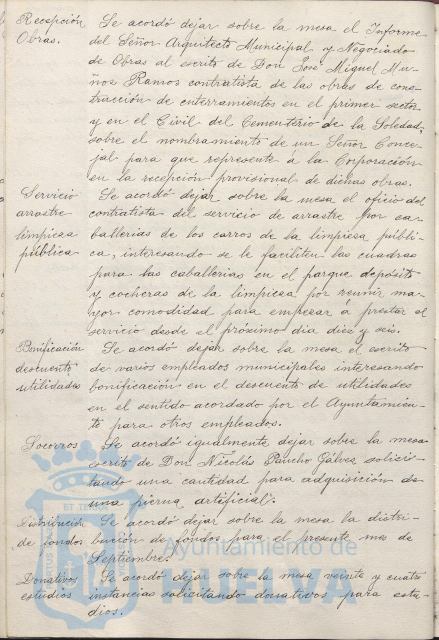 Recepción Se acordó dejar sobre la mesa el Informe
Obras. del Señor Arquitecto Municipal y Negociado
de Obras al escrito de Don José Miguel Mu-
ñoz Ramos contratista de las obras de cons-
trucción de enterramientos en el primer sector
y en el Civil del Cementerio de la Soledad,
sobre el nombramiento de un Señor Conce-
jal para que represente a la Corporación
en la recepción provisional de dichas obras.
Servicio Se acordó dejar sobre la mesa el oficio del
arrastre contratista del servicio de arrastre por ca-
limpieza ballerias de los carros de la limpiesa públi-
pública ca, interesando se le faciliten las cuadras
para las caballerias en el parque depósito
y cocheras de la limpieza por reunir ma-
yor comodidad para empezar a prestar el
servicio desde el próximo dia diez y seis.
Bonificación Se acordó dejar sobre la mesa el escrito
descuento de varios empleados municipales interesando
utilidades bonificación en el descuento de utilidades
en el sentido acordado por el Ayuntamien-
to para otros empleados.
Socorros Se acordó igualmente dejar sobre la mesa
escrito de Don Nicolás Gálvez solici-
tando una cantidad para adquisición de
una pierna artificial.
Distribución Se acordó dejar sobre la mesa la distri-
de fondos bución de fondos para el presente mes de
Septiembre.
Donativos Se acordó dejar sobre la mesa veinte y cuatro
estudios instancias solicitando donativos para estu-
dios.
Ayuntamiento de
HUELVA